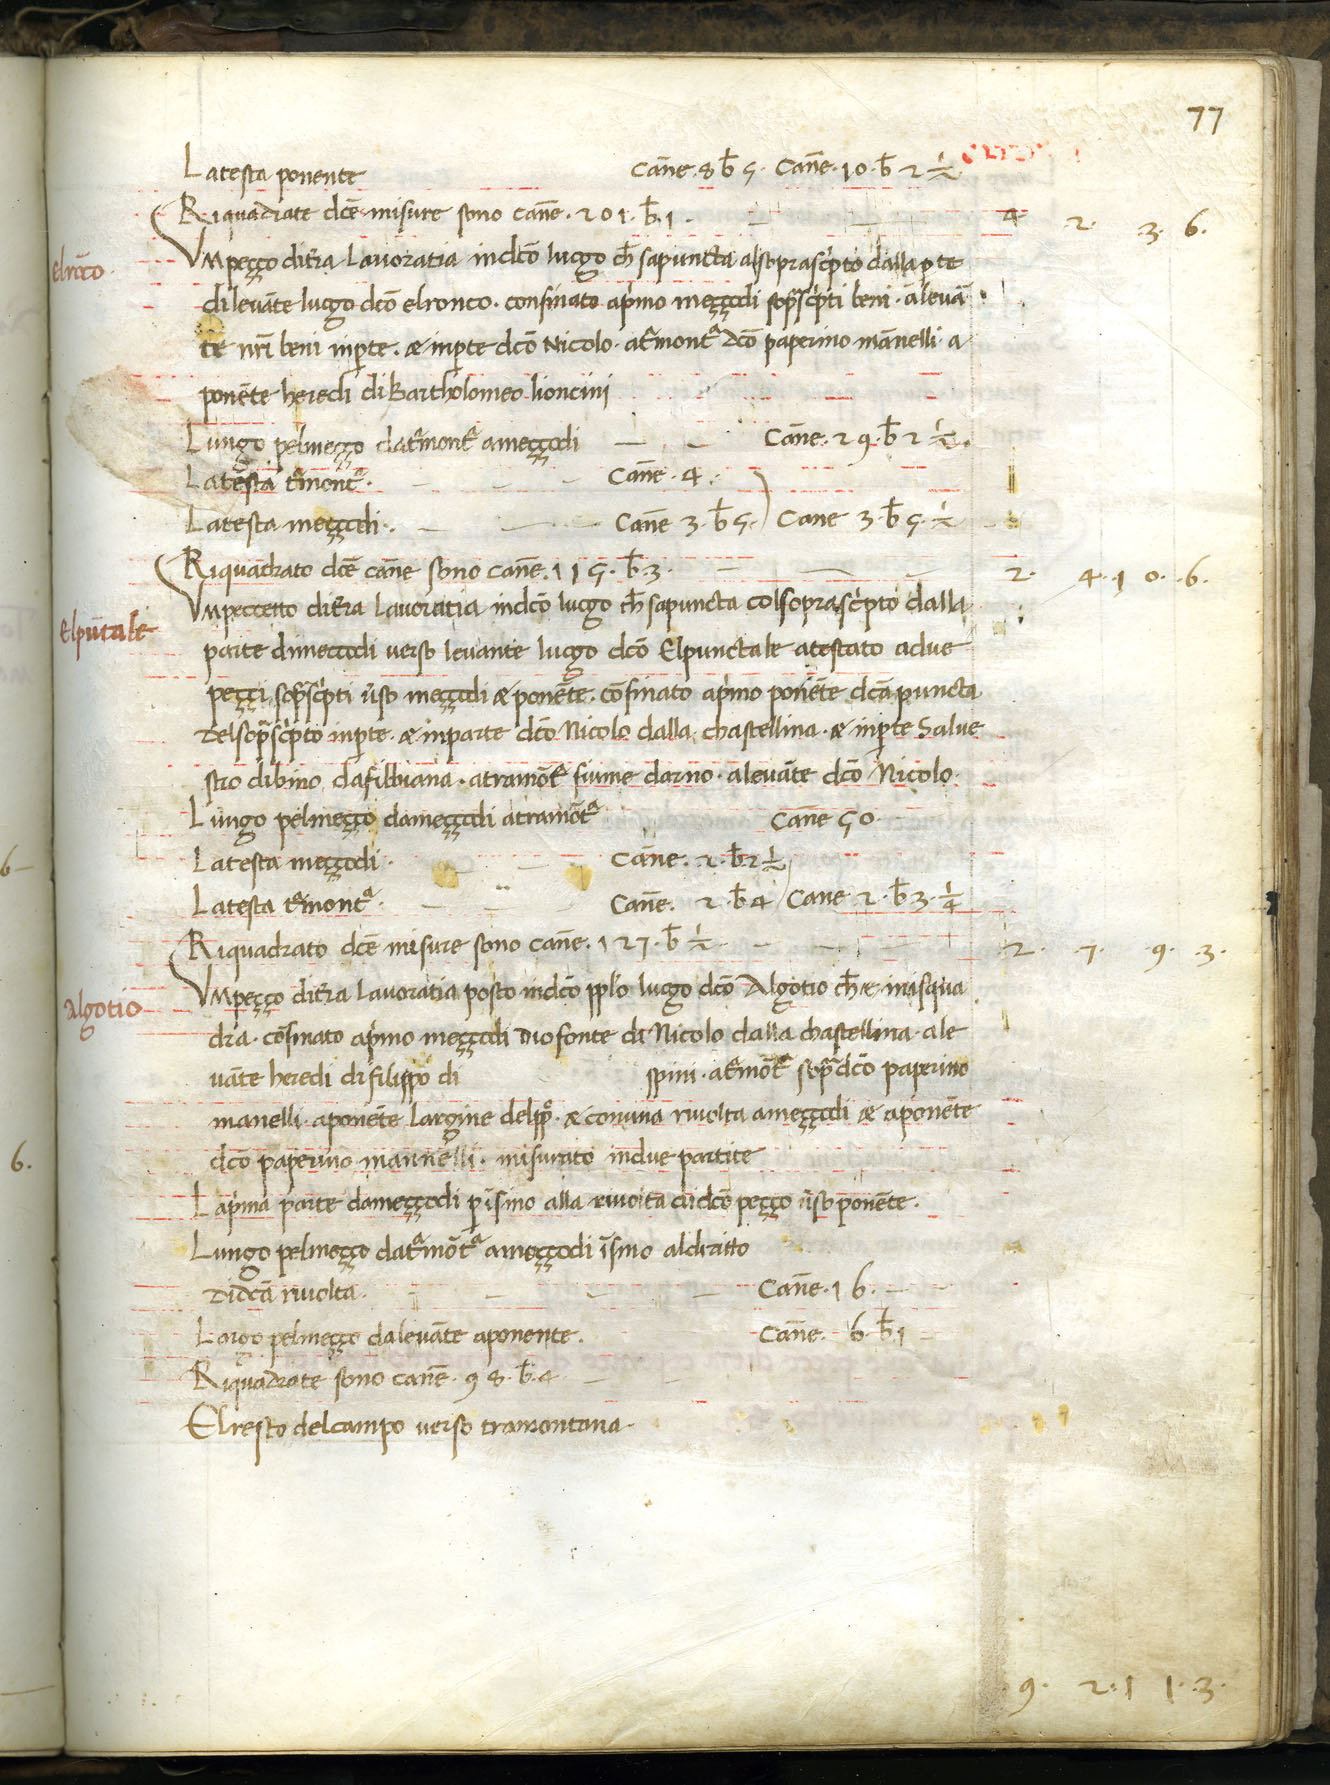 77
Latesta ponente Can̄e . 8 b̄ 5 . Can̄e . 10 . b̄ 2 ½
Riquadrate dc̄e misure sono can̄e . 201 . b̄ . 1 . 4 2 . 3 . 6 .
elrōco .
Vmpeçço dit̄ra Lauoratia indc̄o luogo ch̄ sapuncta alsoprascripto dalla pte
dileuāte luogo dc̄o elronco . confinato ap̄mo meççodi sop̄scr̄pti beni . aleuā
te nr̄i beni inp̄te . & inp̄te dc̄o Nicolo . at̄montᵃ dc̄o paperino manelli . a
ponēte heredi di Bartholomeo lioncini
Lungo pelmeçço dat̄montᵃ ameççodi Can̄e . 29 . b̄ 2 ½ .
Latesta t̄montᵃ . Can̄e . 4 .
Latesta meççodi . Can̄e 3 . b̄ 5 . Cane 3 . b̄ 5 . ½
Riquadrato dc̄e can̄e sono can̄e . 115 . b̄ . 3 . 2 . 4 . 10 . 6 .
Elpūtale
Vmpeccetto dit̄ra Lauoratia indc̄o luogo ch̄ sapuncta colsoprascr̄pto dalla
parte dimeççodi verso leuante luogo dc̄o Elpunctale atestato adue
peççi sop̄scr̄pti v̄so meççodi & ponēte . cōfinato ap̄mo ponēte dc̄a puncta
delsop̄scr̄pto inp̄te . & inparte dc̄o Nicolo dalla chastellina . & inp̄te Salue
stro dibino dafibbiana . atramōtᵃ fiume darno . aleuāte dc̄o Nicolo .
Lungo pelmeçço dameççodi atramōtᵃ Can̄e 50 .
Latesta meççodi . Can̄e . 2 . b̄ . 2 ½
Latesta t̄montᵃ . Can̄e . 2 . b̄ 4 Cane 2 . b̄ 3 . ¼
Riquadrato dc̄e misure sono can̄e . 127 . b̄ ½ . 2 . 7 . 9 . 3 .
Algotio
Vmpeçço dit̄ra Lauoratia posto indc̄o pplo luogo dc̄o Algotio ch̄ & inisqua
dra . cōfinato ap̄mo meççodi Diofonte di Nicolo dalla chastellina . ale
uāte heredi di filippo di spini . at̄mōtᵃ sop̄dc̄o paperino
manelli . aponēte Largine delpp̄o . & conuna riuolta ameççodi & aponēte
dc̄o paperino mannelli . misurato indue partite
Lap̄ma parte dameççodi p īsino alla riuolta didc̄o peçço v̄so ponēte .
Lungo pelmeçço dat̄mōtᵃ ameççodi īsino aldiritto
didc̄a riuolta . Can̄e . 16 .
Largo pelmeçço daleuāte aponente . Can̄e . 6 . b̄ 1
Riquadrate sono can̄e . 98 . b̄ . 4
Elresto delcampo verso tramontana .
9 . 2 . 11 . 3 .